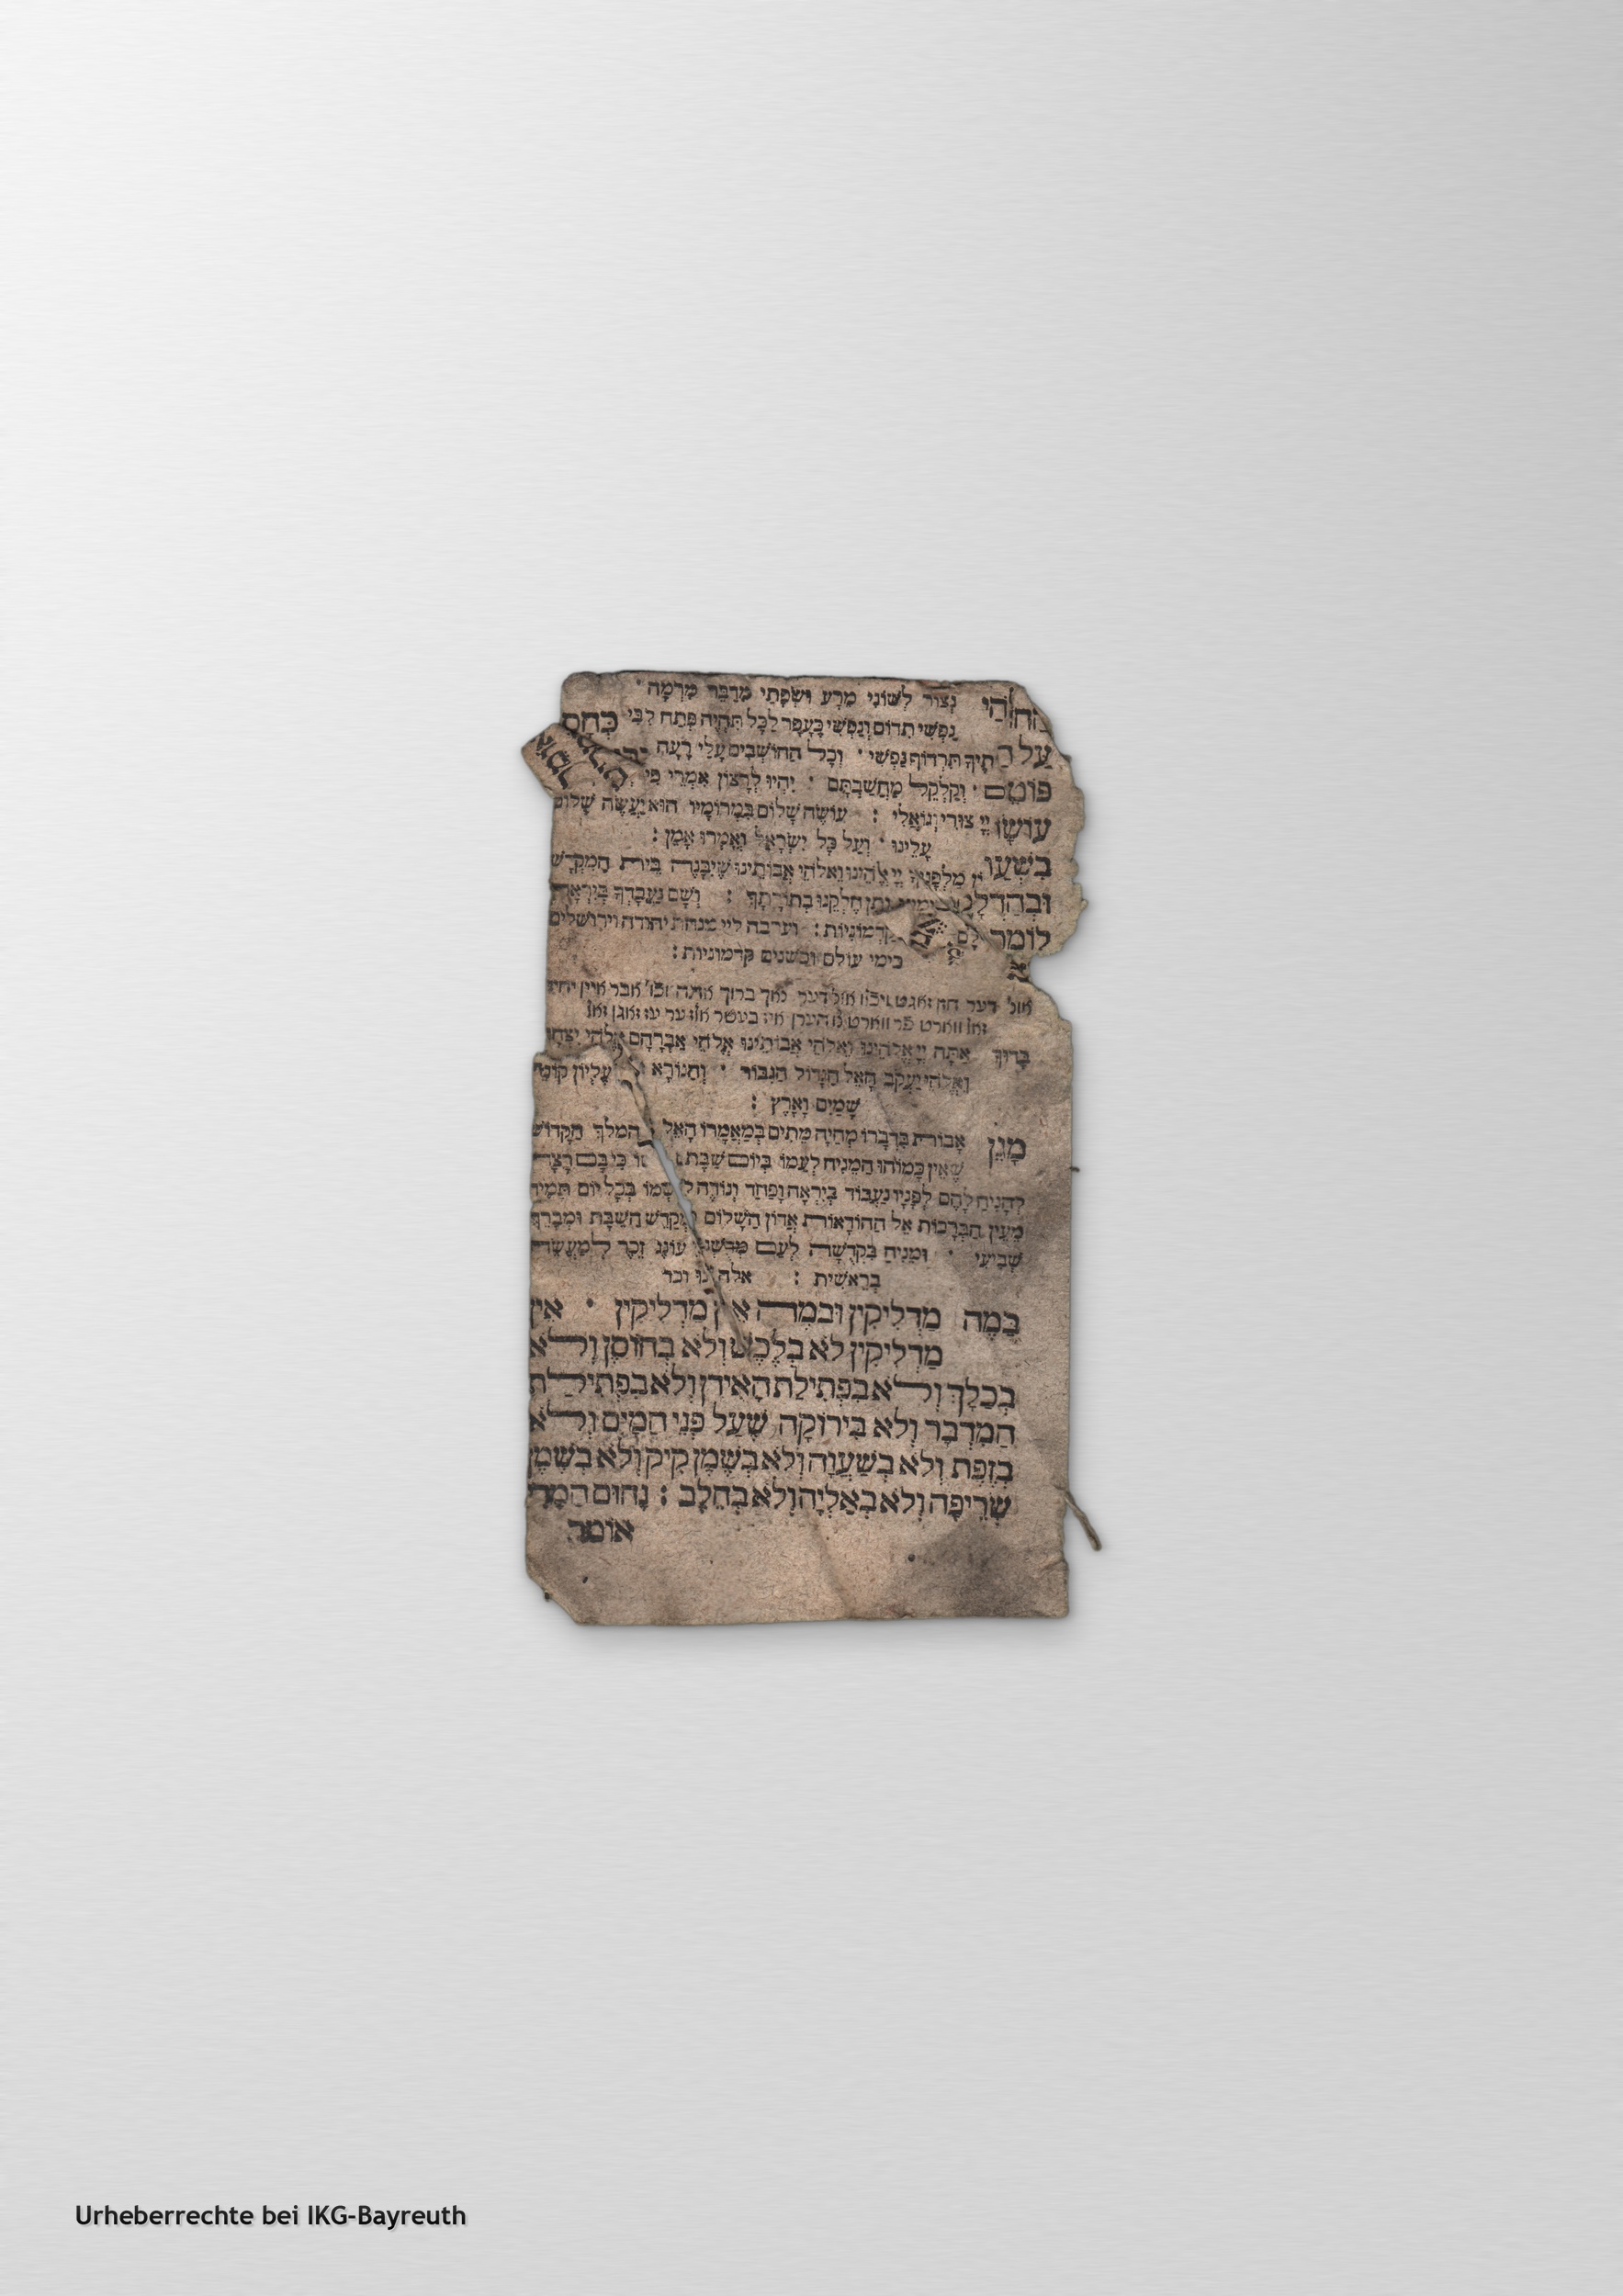 נְצוֹר לְשׁוֹנִי מֵרָע וּשְׂפָתַי מִדַּבֵּר מִרְמָה ·
נַפְשִׁי תִדּוֹם וְנַפְשִׁי כֶּעָפָר לַכָּל תִּהְיֶה פְּתַח לִבִּי
תִּרְדּוֹף נַפְשִׁי · וְכָל הַחוֹשְׁבִים עָלַי רָעָה
פוֹטְם · וְקַלְקֵל מַחֲשַׁבְתָּם · יִהְיוּ לְרָצוֹן אִמְרֵי פִי
עוֹשֶׂו יְיָ צוּרִי וְגוֹאֲלִי : עוֹשֶׂה שָׁלוֹם בִּמְרוֹמָיו הוּא יַעֲשֶׂה שָׁלוֹם
עָלֵינוּ · וְעַל כָּל יִשְׂרָאֵל וְאִמְרוּ אָמֵן :
מִלְּפָנֶיךָ יְיָ אֱלֹהֵינוּ וֵאלֹהֵי אֲבוֹתֵינוּ שֶׁיִּבָּנֶה בֵּית הַמִּקְדָּשׁ
וְתֵן חֶלְקֵנוּ בְּתוֹרָתֶךָ : וְשָׁם נַעֲבָדְךָ בְּיִרְאָה
לוֹמַר קַדְמוֹנִיּוֹת : וערבה ליי מנחת יהודה וירושלים
כימי עולם ובשנים קדמוניות :
אונ' דער חזן זאגט
זאן ווארט פר ווארט
בָּרוּךְ אַתָּה יְיָ אֱלֹהֵינוּ וֵאלֹהֵי אֲבוֹתֵינוּ אֱלֹהֵי אַבְרָהָם אֱלֹהֵי יִצְחָק
וֵאלֹהֵי יַעֲקֹב הָאֵל הַגָּדוֹל הַגִּבּוֹר · וְהַנּוֹרָא עֶלְיוֹן קוֹנֵה
שָׁמַיִם וָאָרֶץ :
מָגֵן אָבוֹת בִּדְבָרוֹ מְחַיֵּה מֵתִים בְּמַאֲמָרוֹ הָאֵל הַמֶּלֶךְ הַקָּדוֹשׁ
שֶׁאֵין כָּמוֹהוּ הַמֵּנִיחַ לְעַמּוֹ בְּיוֹם שַׁבַּת כִּי בָם רָצָה
לְהָנִיחַ לָהֶם לְפָנָיו נַעֲבוֹד בְּיִרְאָה וָפַחַד וְנוֹדֶה לִשְׁמוֹ בְּכָל יוֹם תָּמִיד
מֵעֵין הַבְּרָכוֹת אֵל הַהוֹדָאוֹת אֲדוֹן הַשָּׁלוֹם מְקַדֵּשׁ הַשַּׁבָּת וּמְבָרֵךְ
שְׁבִיעִי · וּמֵנִיחַ בִּקְדֻשָּׁה לְעַם מְדֻשְּׁנֵי עוֹנֶג זֵכֶר לְמַעֲשֵׂה
בְרֵאשִׁית : אלהינו וכו'
בַּמֶּה מַדְלִיקִין וּבַמֶּה אֵין מַדְלִיקִין · אֵין
מַדְלִיקִין לֹא בְלֶכֶשׁ וְלֹא בְחוֹסֶן וְלֹא
בְכַלָּךְ וְלֹא בִפְתִילַת הָאִידָן וְלֹא בִפְתִילַת
הַמִּדְבָּר וְלֹא בִירוֹקָה שֶׁעַל פְּנֵי הַמָּיִם וְלֹא
בְזֶפֶת וְלֹא בְשַׁעֲוָה וְלֹא בְשֶׁמֶן קִיק וְלֹא בְשֶׁמֶן
שְׂרֵיפָה וְלֹא בְאַלְיָה וְלֹא בְחֵלֶב : נָחוּם הַמָּדִי
אוֹמֵר
Urheberrechte bei IKG-Bayreuth